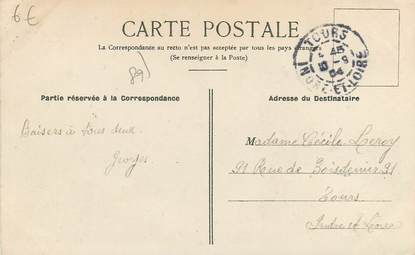 6€
CARTE POSTALE
La Correspondance au recto n'est pas acceptée par tous les pays étrangers
(Se renseigner à la Poste)
89
TOURS
INDRE-ET-LOIRE
Partie réservée à la Correspondance
Adresse du Destinataire
Baisers à tous deux.
Georges
Madame Cécile Leroy
91 Rue de Boisdenier 91
Tours
Indre et Loire